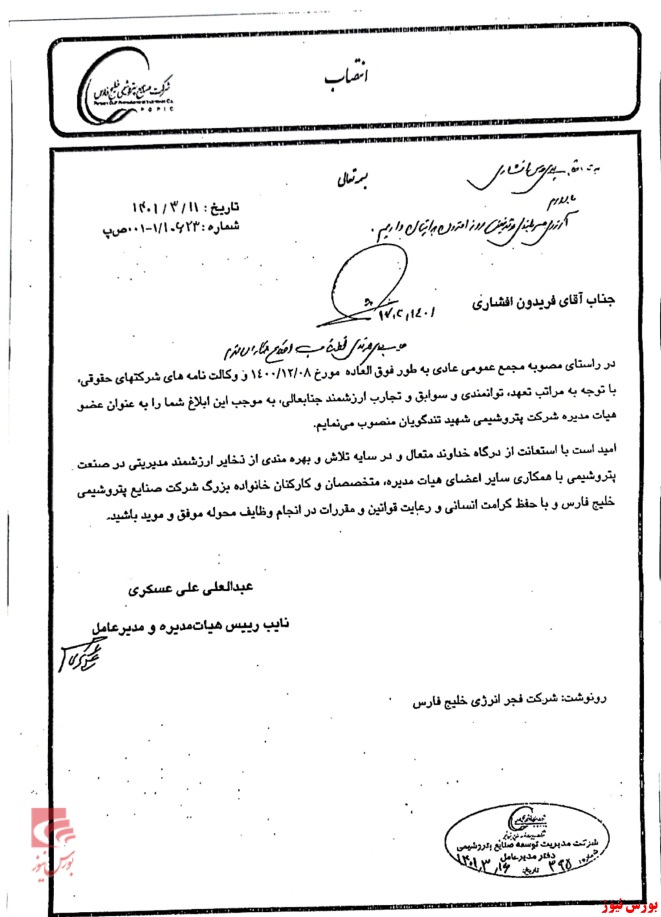 انتصاب
شرکت صنایع پتروشیمی خلیج فارس
Persian Gulf Petrochemical Industries Co.
P G P I C
بسمه تعالی
تاریخ: ۱۴۰۱/۳/۱۱
شماره: ۱/۱۰۶۲۳-۰۰۱ص‌پ
آرزوی سربلندی و توفیق روز افزون برایتان داریم.
جناب آقای فریدون افشاری
در راستای مصوبه مجمع عمومی عادی به طور فوق العاده مورخ ۱۴۰۰/۱۲/۰۸ و وکالت نامه های شرکتهای حقوقی،
با توجه به مراتب تعهد، توانمندی و سوابق و تجارب ارزشمند جنابعالی، به موجب این ابلاغ شما را به عنوان عضو
هیات مدیره شرکت پتروشیمی شهید تندگویان منصوب می‌نمایم.
امید است با استعانت از درگاه خداوند متعال و در سایه تلاش و بهره مندی از ذخایر ارزشمند مدیریتی در صنعت
پتروشیمی با همکاری سایر اعضای هیات مدیره، متخصصان و کارکنان خانواده بزرگ شرکت صنایع پتروشیمی
خلیج فارس و با حفظ کرامت انسانی و رعایت قوانین و مقررات در انجام وظایف محوله موفق و موید باشید.
عبدالعلی علی عسکری
نایب رییس هیات‌مدیره و مدیرعامل
رونوشت: شرکت فجر انرژی خلیج فارس
شرکت مدیریت توسعه صنایع پتروشیمی
دفتر مدیرعامل
شماره: ۳۹۵ تاریخ: ۱۴۰۱/۳/۱۶
بورس نیوز
بورس نیوز